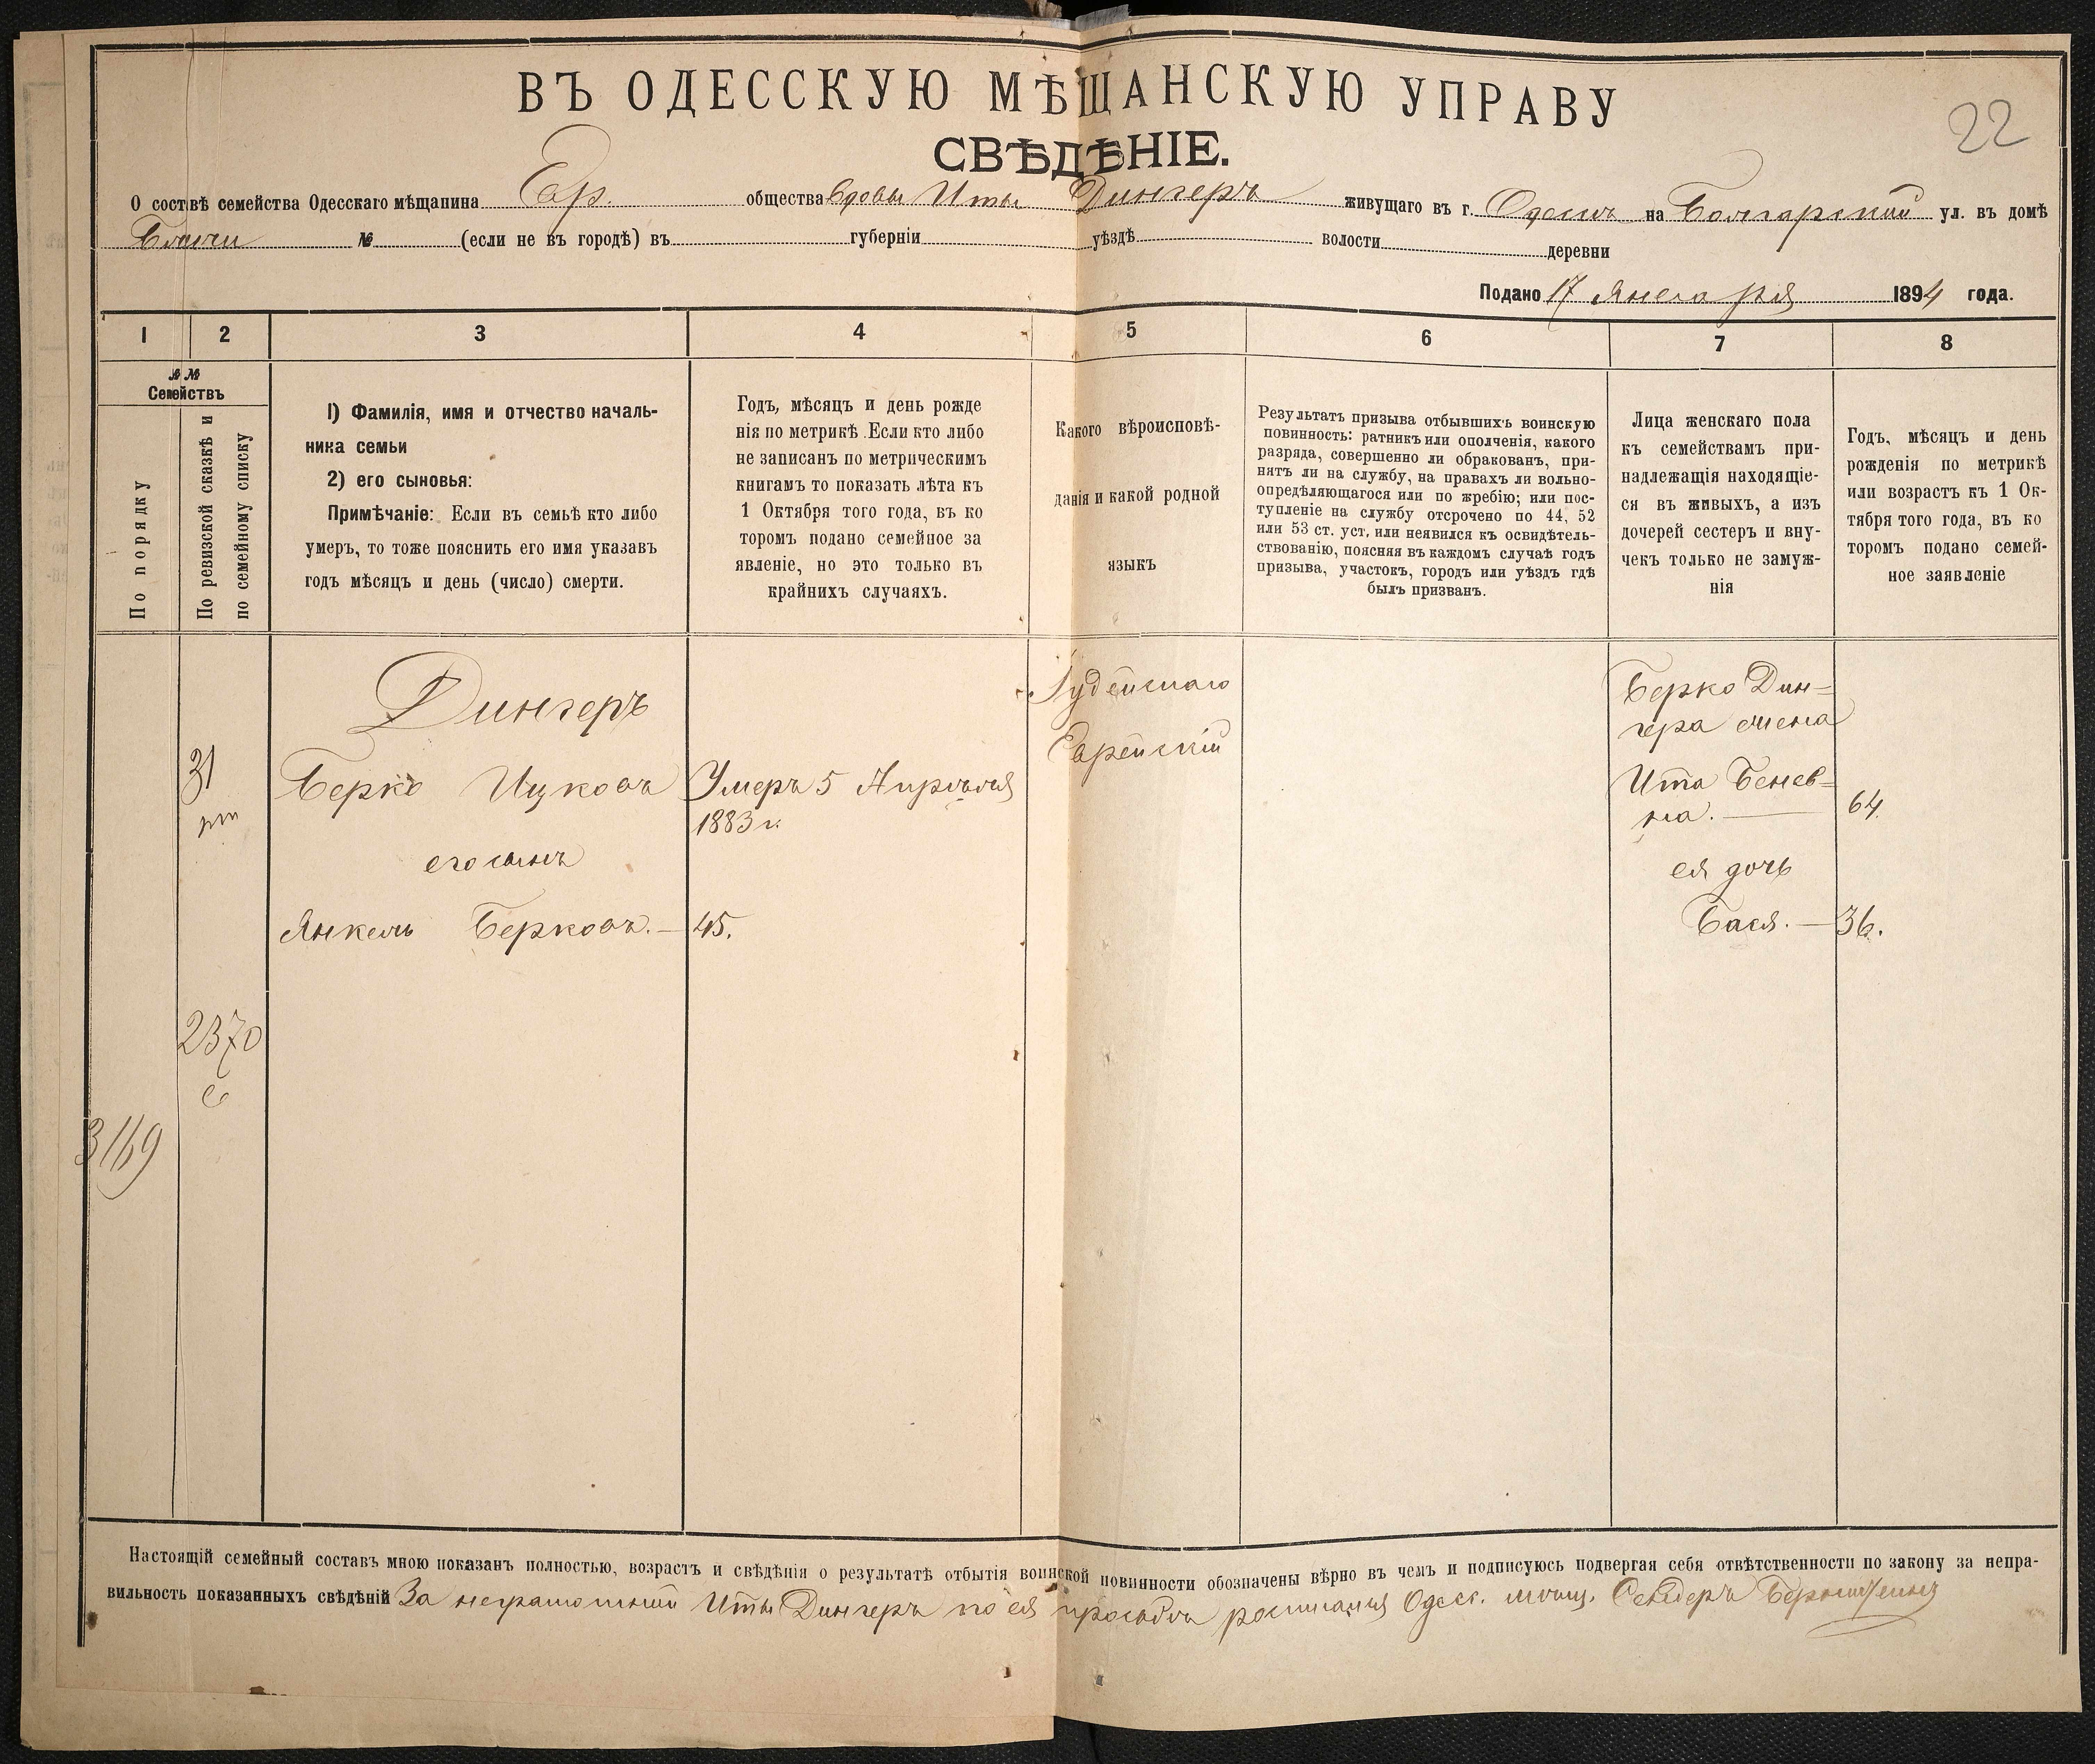 22
ВЪ ОДЕССКУЮ МѢЩАНСКУЮ УПРАВУ
СВѢДѢНІЕ.
О состwвѣ семейства Одесскаго мѣщанина Евр. общества вдовы Иты Дингеръ живущаго въ г. Одессѣ на Болгарской ул. въ домѣ
№ (если не въ городѣ) въ губерніи уѣздѣ волости деревни
Подано 17 Января 1894 года.
1 2 3 4 5 6 7 8
№ №
Семействъ
По порядку
По ревизской сказкѣ и
по семейному списку
1) Фамилія, имя и отчество началь-
ника семьи
2) его сыновья:
Примѣчаніе: Если въ семьѣ кто либо
умеръ, то тоже пояснить его имя указавъ
годъ мѣсяцъ и день (число) смерти.
Годъ, мѣсяцъ и день рожде
нія по метрикѣ. Если кто либо
не записанъ по метрическимъ
книгамъ то показать лѣта къ
1 Октября того года, въ ко
торомъ подано семейное за
явленіе, но это только въ
крайнихъ случаяхъ.
Какого вѣроисповѣ-
данія и какой родной
языкъ
Результатъ призыва отбывшихъ воинскую
повинность: ратникъ или ополченія, какого
разряда, совершенно ли обракованъ, при-
нятъ ли на службу, на правахъ ли вольно-
опредѣляющагося или по жребію; или пос-
тупленіе на службу отсрочено по 44, 52
или 53 ст. уст, или неявился къ освидѣтель-
ствованію, поясняя въ каждомъ случаѣ годъ
призыва, участокъ, городъ или уѣздъ гдѣ
былъ призванъ.
Лица женскаго пола
къ семействамъ при-
надлежащія находящіе-
ся въ живыхъ, а изъ
дочерей сестеръ и вну-
чекъ только не замуж-
нія
Годъ, мѣсяцъ и день
рожденія по метрикѣ
или возрастъ къ 1 Ок-
тября того года, въ ко
торомъ подано семей-
ное заявленіе
Дингеръ
31
Берко Ицковъ
Умеръ 5 Апрѣля
1883 г.
его сынъ
Янкель Берковъ. — 45.
Іудейскаго
Еврейскій
Берко Дин=
гера жена
Ита Бенев=
на. — 64.
ея дочь
Бася. — 36.
2370
с
3169
Настоящій семейный составъ мною показанъ полностью, возрастъ и свѣдѣнія о результатѣ отбытія воинской повинности обозначены вѣрно въ чемъ и подписуюсь подвергая себя отвѣтственности по закону за непра-
вильность показанныхъ свѣдѣній За неграмотной Иты Дингеръ по ея просьбѣ росписался Одесс. мѣщ. Сендеръ